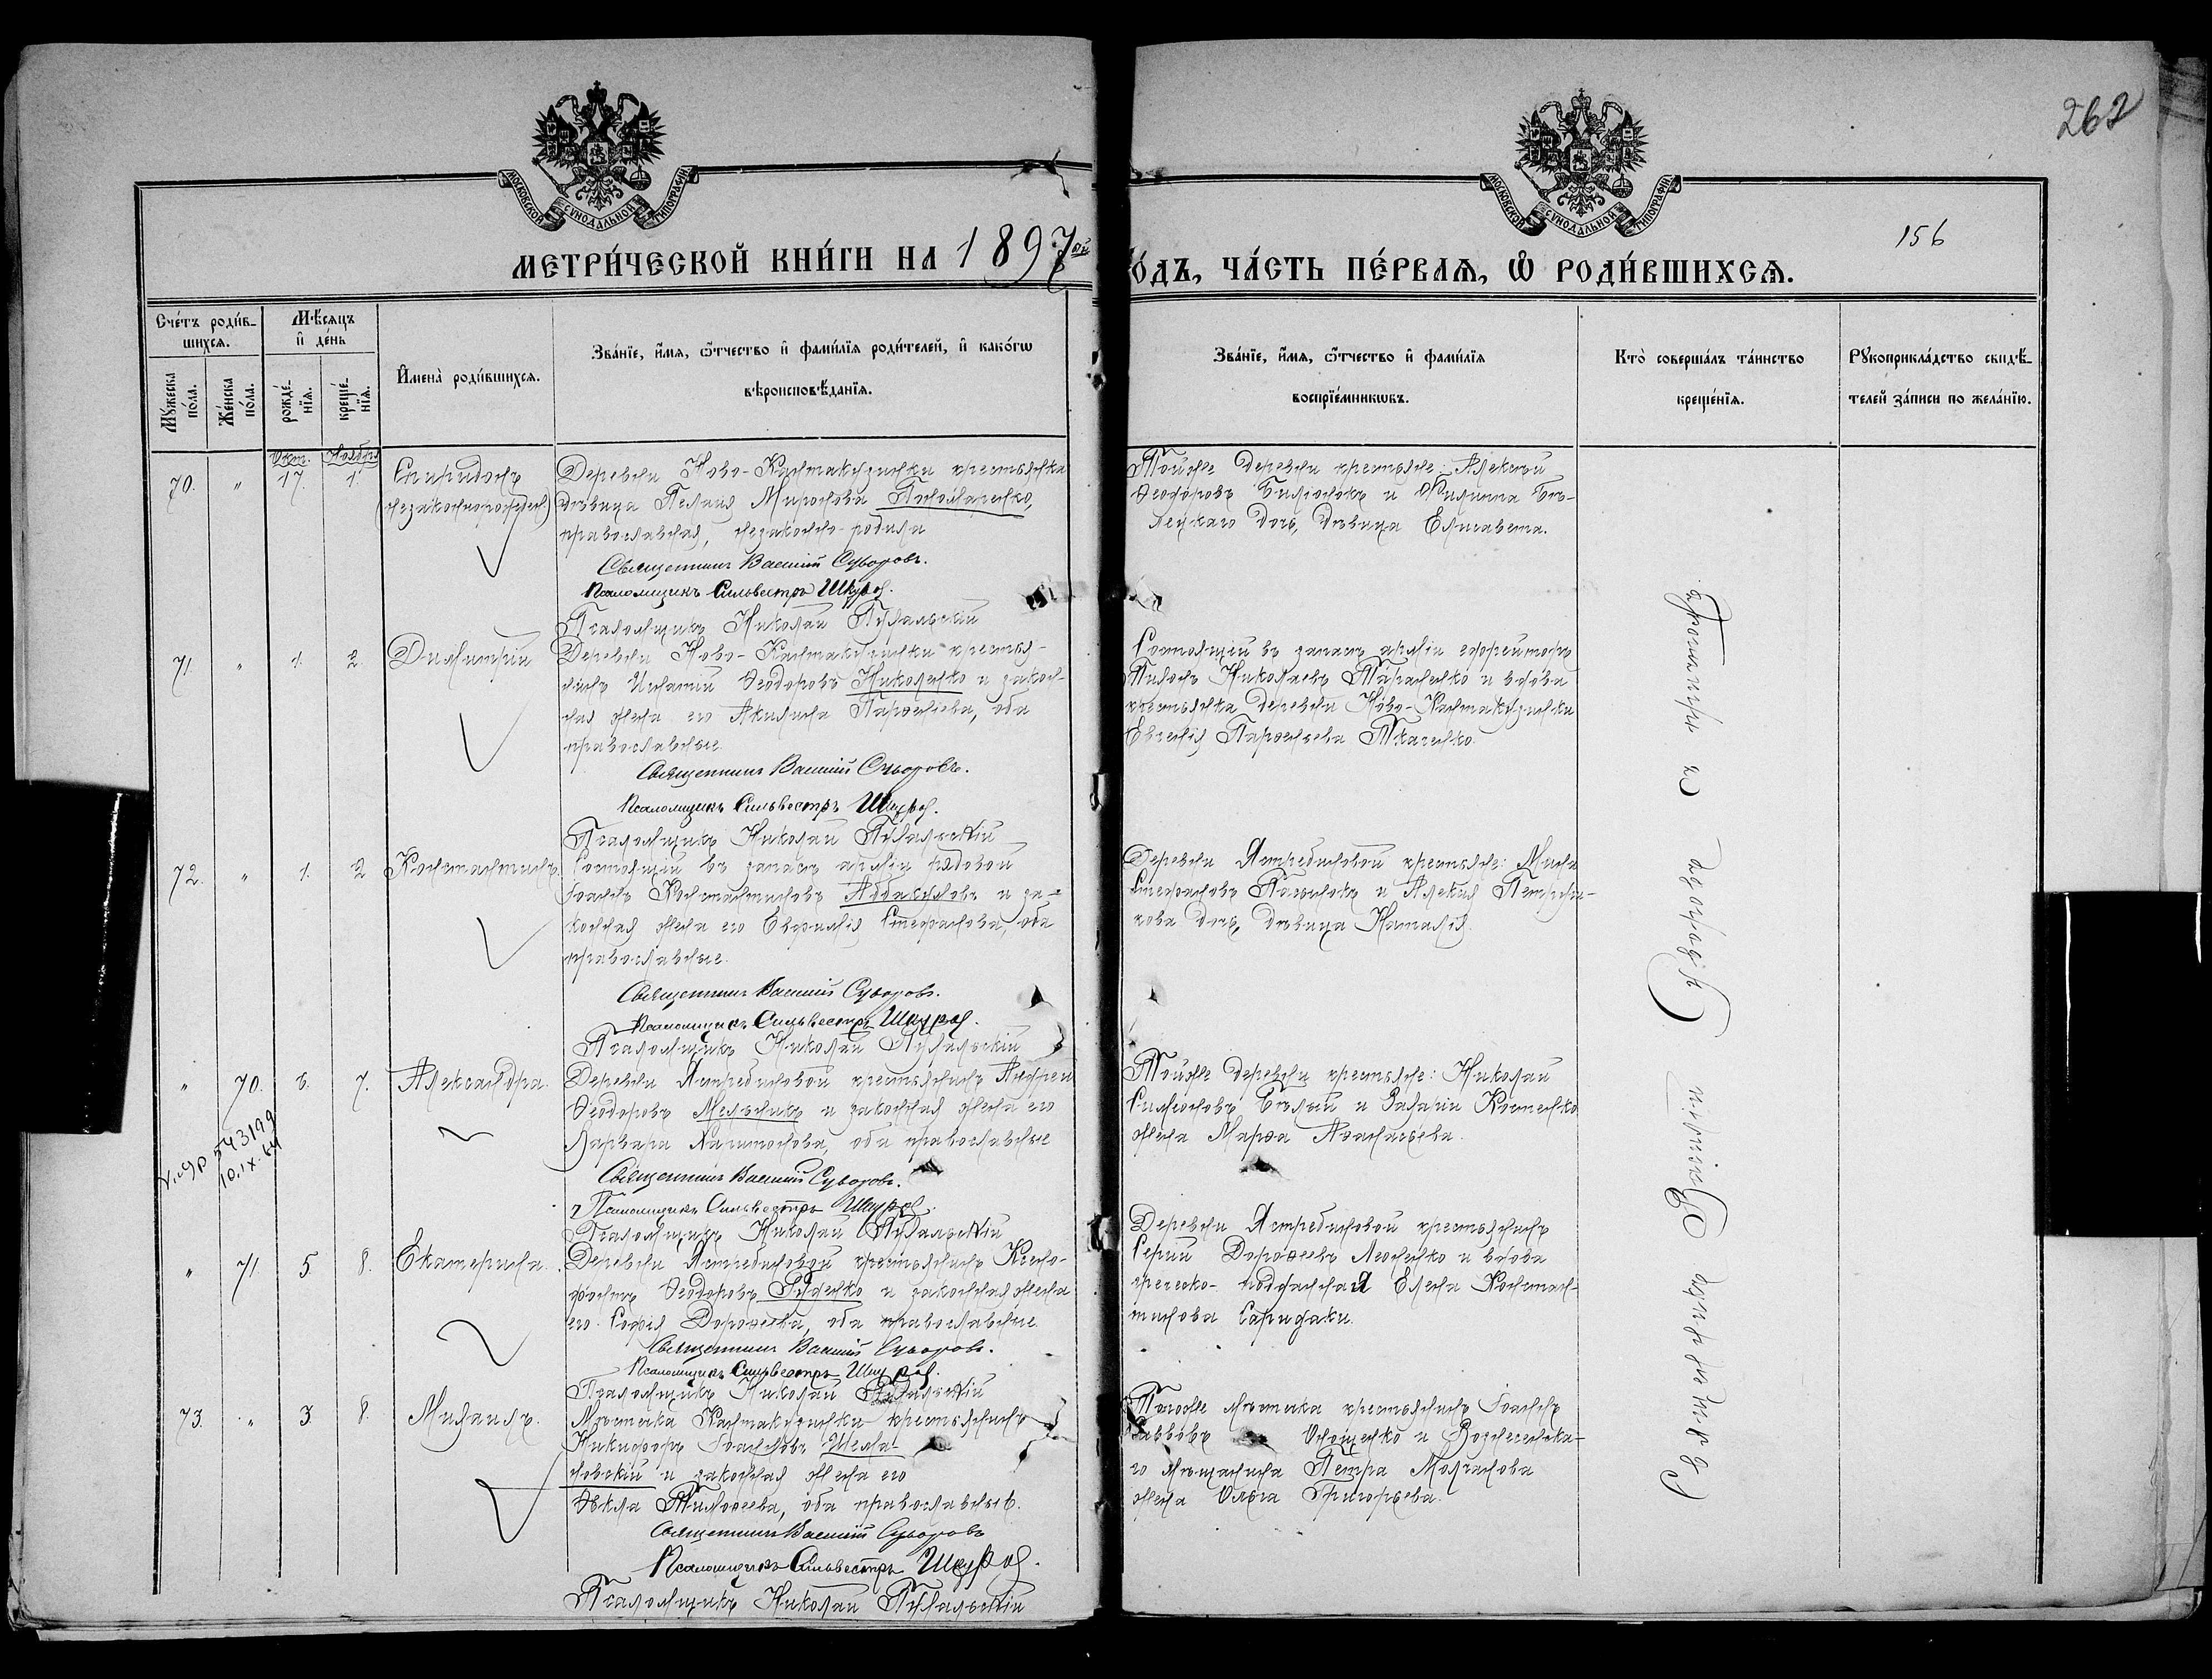 262
156
МОСКОВСКОЙ СѴНОДАЛЬНОЙ ТИПОГРАФІИ
МОСКОВСКОЙ СѴНОДАЛЬНОЙ ТИПОГРАФІИ
МЕТРИ́ЧЕСКОЙ КНИ́ГИ НА 1897ой
О́ДЪ, ЧА́СТЬ ПЕ́РВАѦ, Ѡ РОДИ́ВШИХСѦ.
Сче́тъ роди́в-
шихсѧ.
Мꙋ́жеска по́ла.
Же́нска по́ла.
Мѣ́сѧцъ и҆ де́нь
рожде́-нїѧ.
креще́-нїѧ.
И҆мена̀ роди́вшихсѧ.
Зва́нїе, и҆́мѧ, ѻ҆́тчество и҆ фами́лїѧ роди́телей, и҆ како́гѡ
вѣроисповѣ́данїѧ.
Зва́нїе, и҆́мѧ, ѻ҆́тчество и҆ фами́лїѧ
воспрїе́мникѡвъ.
Кто̀ соверша́лъ та́инство
креще́нїѧ.
Рꙋкоприкла́дство свидѣ́-
телей за́писи по жела́нїю.
Окт. Ноября
70. " 17. 1. Спиридонъ
(незаконнорожден.)
Деревни Ново-Кантакузинки крестьянка
дѣвица Пелагія Миронова Пономаренко,
православная, незаконно-родила
Священникъ Василій Суворовъ.
Псаломщикъ Сильвестръ Шкурой.
Псаломщикъ Николай
Тойже деревни крестьяне: Алексѣй
Ѳеодоровъ Билюнокъ и Филиппа Бѣ-
лецкаго дочь, дѣвица Елисавета.
71 " 1. 2. Димитрій
Деревни Ново-Кантакузинки крестья-
нинъ Игнатій Ѳеодоровъ Николенко и закон-
ная жена его Акилина Парѳеніева, оба
православные.
Священникъ Василій Суворовъ.
Псаломщикъ Сильвестръ Шкурой.
Псаломщикъ Николай
Состоящій въ запасѣ арміи ефрейторъ
Пименъ Николаевъ Тараненко и вдова
крестьянка деревни Ново-Кантакузинки
Евгенія Парѳеньева Ткаченко.
72. " 1. 2 Константинъ.
Состоящій въ запасѣ арміи рядовой
Іоаннъ Константиновъ Аббакумовъ и за-
конная жена его Евфимія Стефанова, оба
православные.
Священникъ Василій Суворовъ.
Псаломщикъ Сильвестръ Шкурой.
Псаломщикъ Николай
Деревни Ястребиновой крестьяне: Мина
Стефановъ и Алексія
дочь, дѣвица Наталія.
" 70. 6. 7. Александра.
Деревни Ястребиновой крестьянинъ Андрей
Ѳеодоровъ Мельникъ и законная жена его
Варвара Харитонова, оба православные
Священникъ Василій Суворовъ.
Псаломщикъ Сильвестръ Шкурой.
Псаломщикъ Николай
Тойже деревни крестьяне: Николай
Симеоновъ Бѣлый и Захарія Костенко
жена Марѳа Аѳанасьева.
543199
10.IX.64
" 71. 5. 8. Екатерина.
Деревни Ястребиновой крестьянинъ Ксено-
фонтъ Ѳеодоровъ Руденко и законная жена
его Софія Дороѳеева, оба православные.
Священникъ Василій Суворовъ.
Псаломщикъ Сильвестръ Шкурой.
Псаломщикъ Николай
Деревни Ястребиновой крестьянинъ
Сергій Дороѳеевъ Леоненко и вдова
греческо-подданная Елена Констан-
тинова Саридаки.
73. " 3 8. Михаилъ.
Мѣстечка Кантакузинки крестьянинъ
Никифоръ Іоанновъ Шема-
новскій и законная жена его
Ѳекла Тимоѳеева, оба православные.
Священникъ Василій Суворовъ
Псаломщикъ Сильвестръ Шкурой.
Псаломщикъ Николай
Тогоже мѣстечка крестьянинъ Іоаннъ
Саввовъ Онощенко и Вознесенска-
го мѣщанина Петра Молчанова
жена Ольга Григорьева.
Священникъ Василій Суворовъ съ причтомъ.